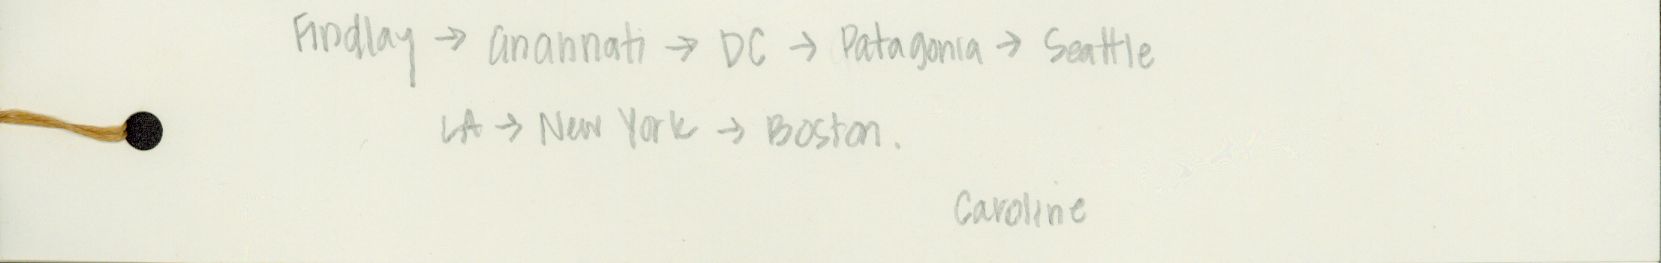 Findlay → Cincinnati → DC → Patagonia → Seattle
LA → New York → Boston.
Caroline